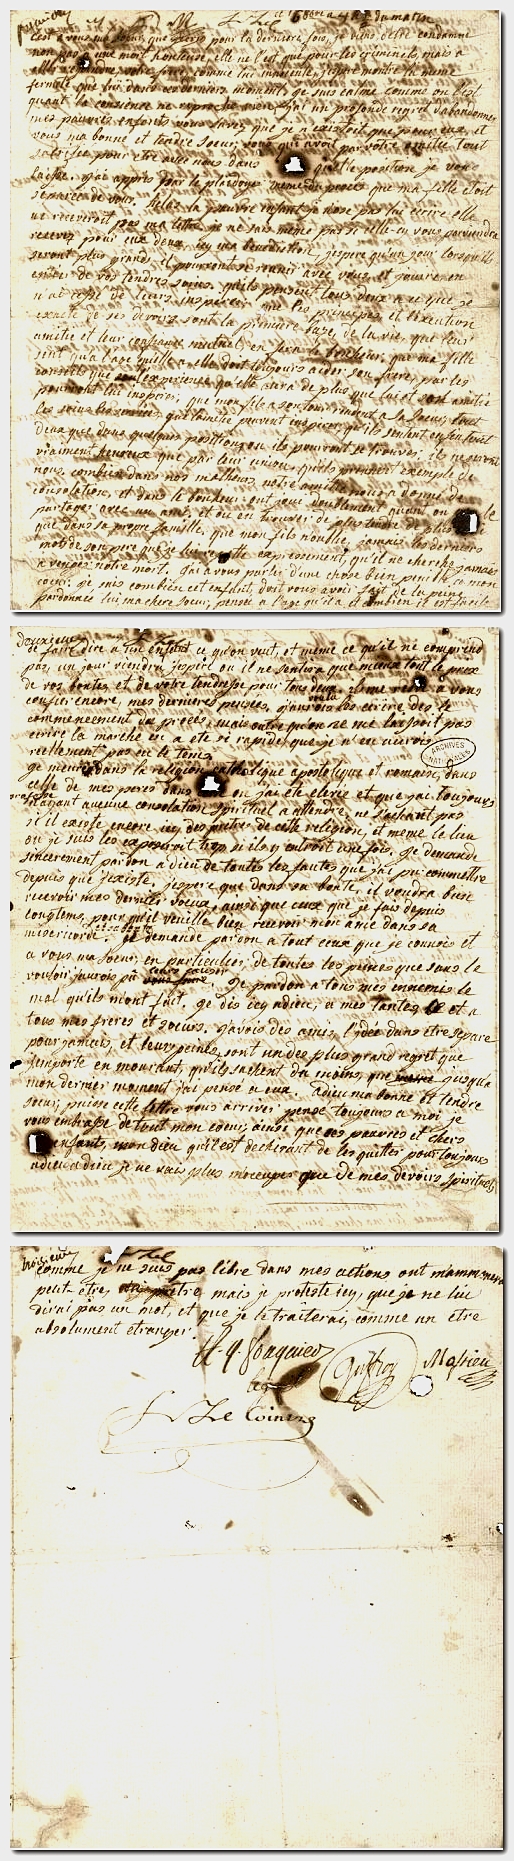 ce 16 8bre a 4 h ½ du matin
c'est a vous ma soeur, que j'ecris pour la derniere fois, je viens d'etre condamnée
non pas a une mort honteuse, elle ne l'est que pour les criminels, mais a
aller rejoindre votre frere, comme lui innocente, j'espere montrer la meme
fermeté que lui dans ces derniers moments. je suis calme comme on l'est
quand la conscience ne reproche rien, j'ai un profond regret d'abandonner
mes pauvres enfants, vous savez que je n'existois que pour eux, et
vous ma bonne et tendre soeur, vous qui avez par votre amitie tout
sacrifié pour etre avec nous dans quelle position je vous
laisse, j'ai appris par le plaidoyer meme du proces que ma fille etoit
separée de vous. helas la pauvre enfant je n'ose pas lui ecrire elle
ne receveroit pas ma lettre je ne sais meme pas si celle-ci vous parviendra
recevez pour eux deux, icy ma benediction, j'espere qu'un jour lorsqu'ils
seront plus grands, il pourront se reunir avec vous, et jouire en
entier de vos tendres soins. qu'ils pensent tous deux a ce que je
n'ai cessé de leurs inspirer que les principes, et l'execution
exacte de ses devoirs sont la premiere base, de la vie, que leur
amitie et leur confiance mutuele, en fera le bonheur, que ma fille
sent qu'a l'age qu'elle a elle doit toujours aider son frere, par les
conseils que l'experience qu'elle aura de plus que lui et son amitie
pourront lui inspirer, que mon fils a son tour, rende a sa soeur, tout
les soins les services, que l'amitie peuvent inspirer, qu'ils sentent enfin tout
deux que dans quelques positions ou ils pourront se trouver, ils ne seront
vraiment heureux que par leur union, qu'ils prennent exemple de
nous, combien dans nos malheurs notre amitie nous a donné de
consolation, et dans le bonheur on joui doublement quand on
partager avec un ami, et ou en trouver de plus tendre de plus
que dans sa propre famille, que mon fils n'oublie, jamais les derniers
mots de son pere que je lui repete expressement, qu'il ne cherche jamais
a venger notre mort. j'ai a vous parler d'une chose bien penible a mon
coeur, je sais combien cet enfant, doit vous avoir fait de la peine,
pardonnez lui, ma chere soeur, pensez a l'age qu'il a et combien il est facile
deuxieme
de faire dire a un enfant ce qu'on veut, et meme ce qu'il ne comprend
pas, un jour viendra j'espere ou il ne sentira que mieux tout le prix
de vos bontes et de votre tendresse pour tous deux il me reste a vous
confier encore, mes dernieres pensées, j'aurois voulu les ecrire des le
commencement du proces, mais outre qu'on ne me laissoit pas
ecrire la marche en a ete si rapide, que je n'en aurois
reellement pas eu le tems.
je meurs dans la religion catholique apostolique et romaine, dans
celle de mes peres dans ou j'ai ete elevée et que j'ai toujours
professée
n'ayant aucune consolation spirituel a attendre, ne sachant pas
si il existe encore icy des pretres de cette religion, et meme le lieu
ou je suis les exposeroit trop si ils y entroit une fois. je demande
sincerement pardon a dieu de toutes les fautes que j'ai pu commettre
depuis que j'existe. j'espere que dans sa bonté, il voudra bien
recevoir mes derniers voeux, ainsi que ceux que je fais depuis
longtems, pour qu'il veuille bien recevoir mon ame dans sa
misericorde et sa bonté. je demande pardon a tout ceux que je connois et
a vous ma soeur, en particulier, de toutes les peines que sans le
vouloir j'aurois pu leurs causer, je pardonne a tous mes ennemis le
mal qu'ils m'ont fait. je dis icy adieu, a mes tantes et a
tous mes freres et soeurs. j'avois des amis, l'idée d'en etre separé
pour jamais, et leurs peines, sont un des plus grand regret que
j'emporte en mourant, qu'ils sachent du moins, que jusqu'a
mon dernier moment j'ai pensé a eux. adieu ma bonne et tendre
soeur; puisse cette lettre vous arriver, penser toujours a moi, je
vous embrasse de tout mon coeur, ainsi que ces pauvres et chers
enfants, mon dieu qu'il est dechirant de les quitter pour toujours
adieu adieu je ne vais plus m'occuper que de mes devoirs spirituels
troisieme
comme je ne suis pas libre dans mes actions ont m'ammenera
peut-etre, un pretre, mais je proteste icy, que je ne lui
dirai pas un mot, et que je le traiterai comme un etre
absolument etranger.
A. Q. Fouquier
Guffroy Massieu
Le Cointre
ARCHIVES NATIONALES